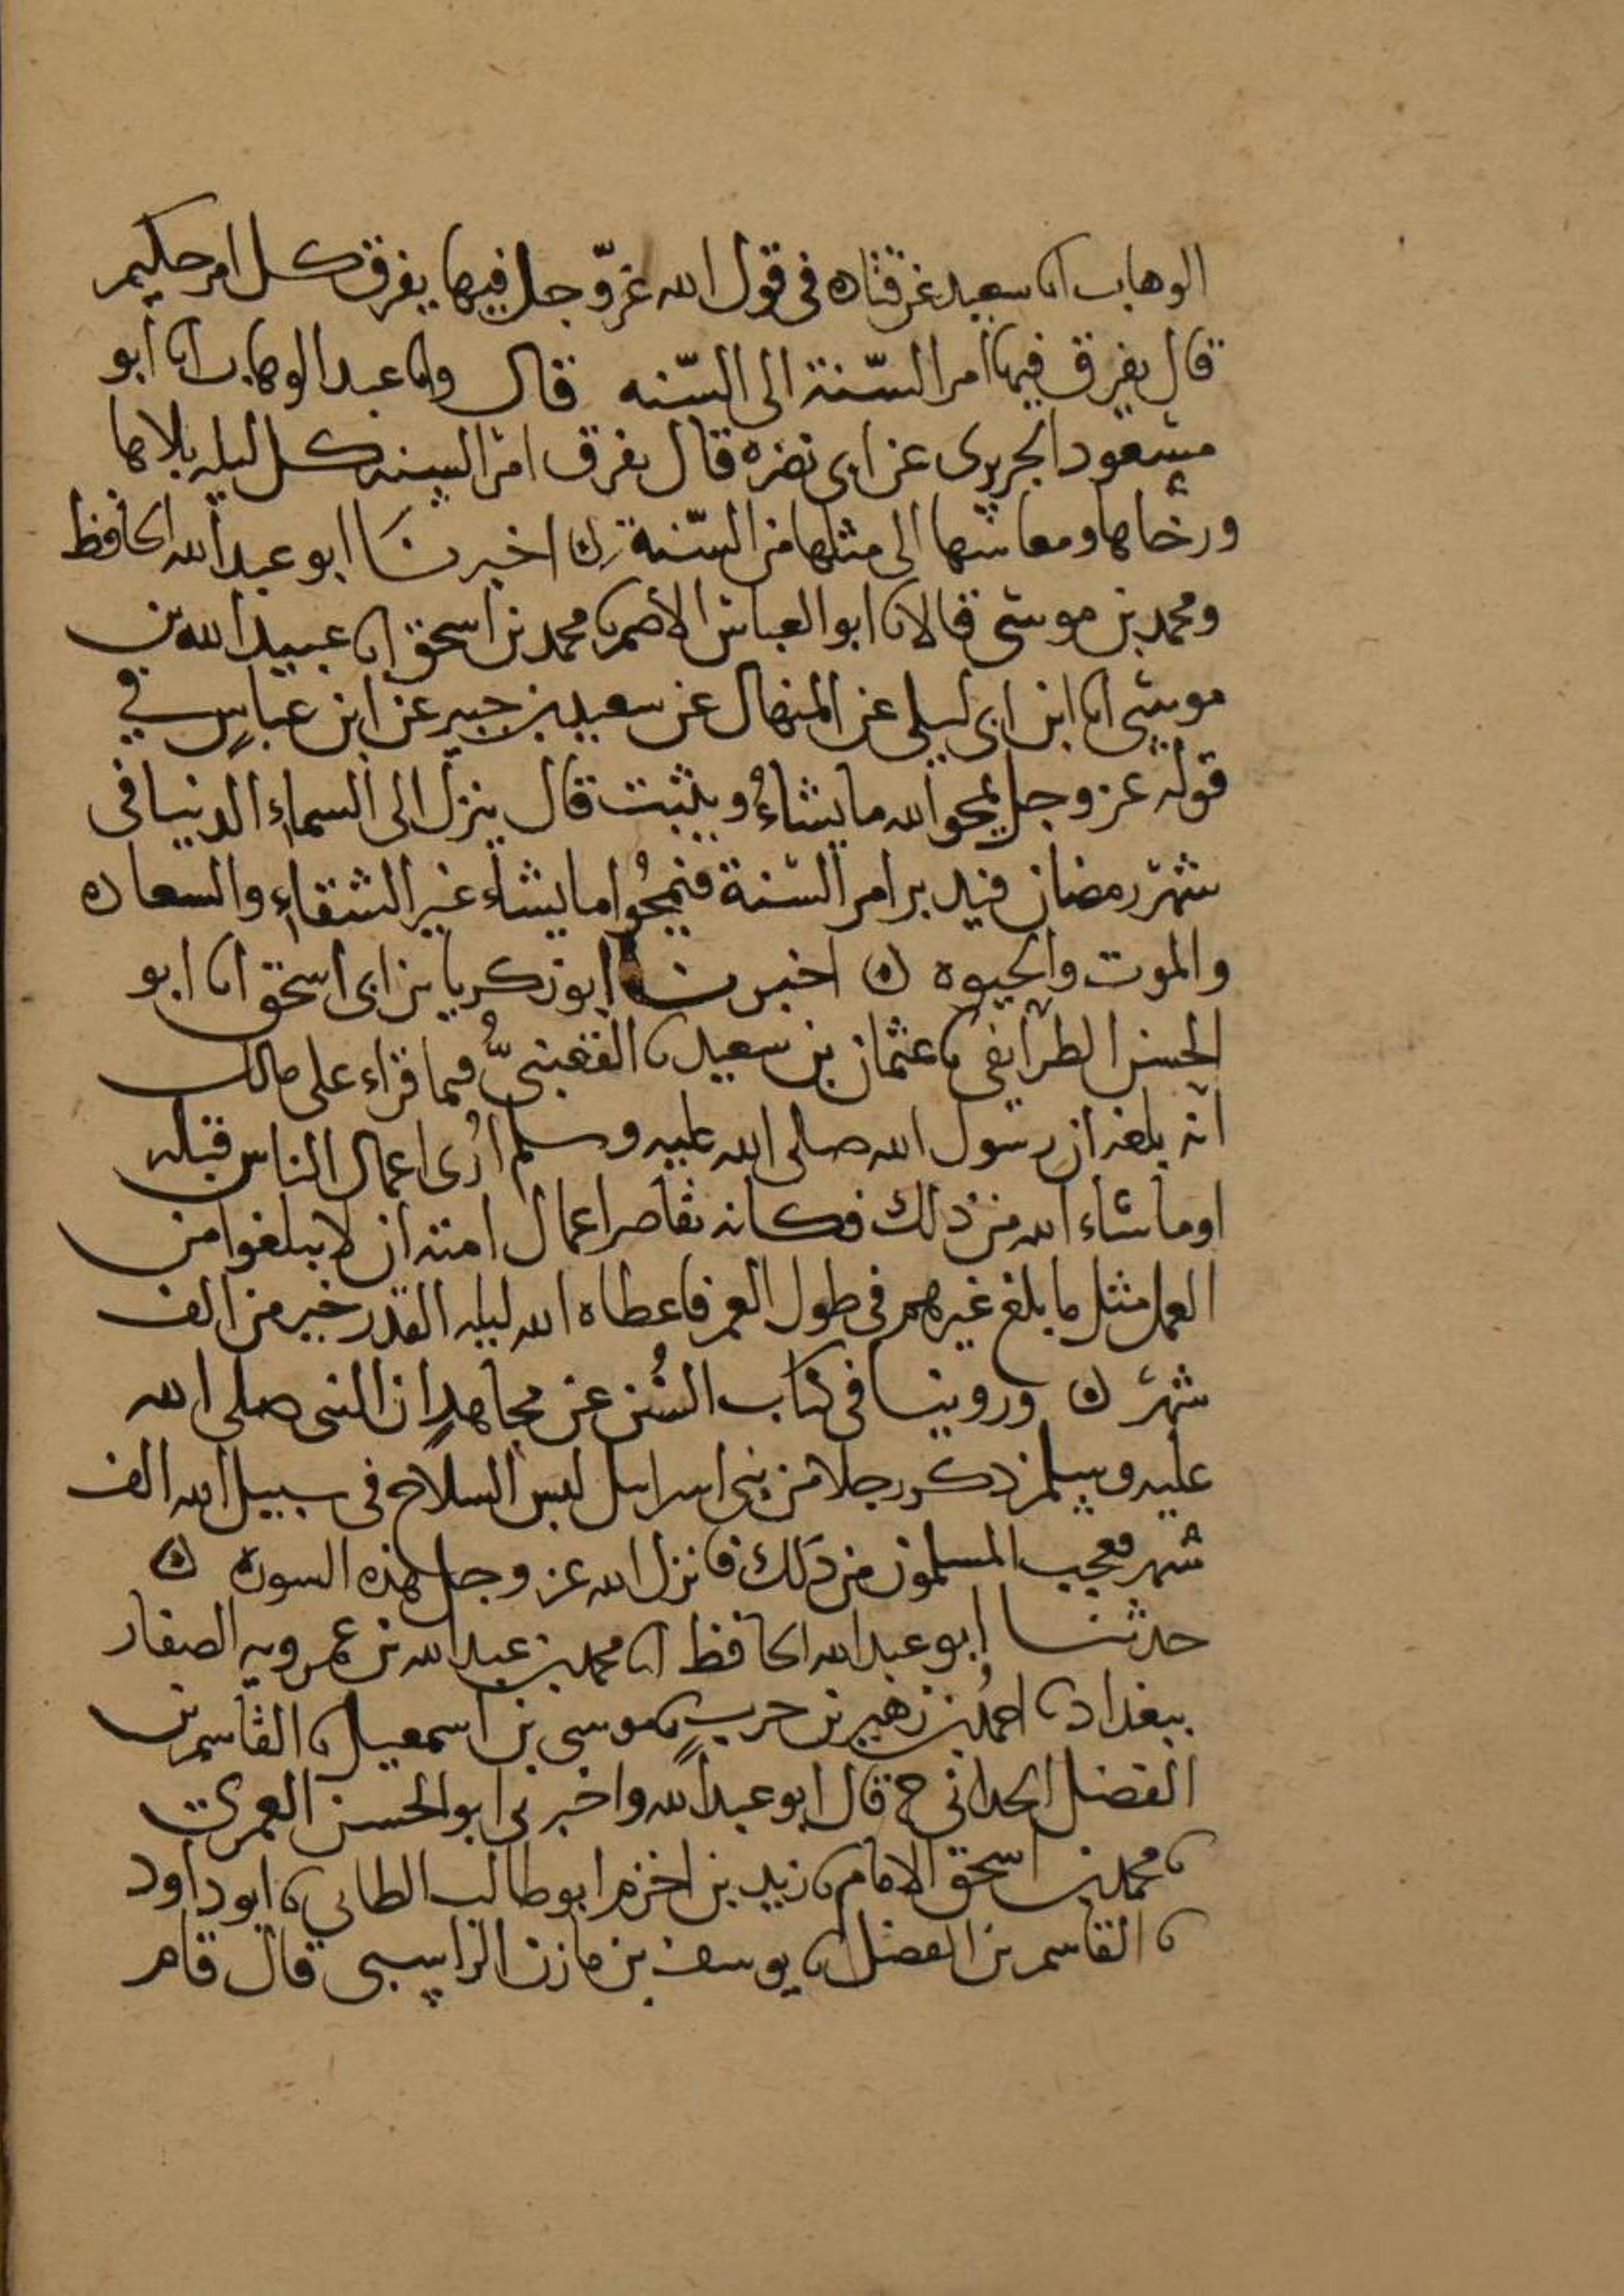 الوهاب انا سعيد عن قتاده في قول الله عزّ وجل فيها يفرق كل امر حكيم
قال يفرق فيها امر السّنة الى السّنه قال وانا عبد الوهاب انا ابو
مسعود الجريري عن ابي نضره قال يفرق امر السنه كل ليله بلاها
ورخاها ومعاشها الى مثلها من السّنة ن اخبرنا ابو عبد الله الحافظ
ومحمد بن موسى قالا نا ابو العباس الاصم نا محمد بن اسحق انا عبيد الله بن
موسى انا ابن ابي ليلى عن المنهال عن سعيد بن جبير عن ابن عباسٍ في
قوله عز وجل يمحو الله ما يشاءُ ويثبت قال ينزل الى السماء الدنيا في
شهر رمضان فيدبر امر السّنة فيمحُوا ما يشاء غير الشقاءِ والسعاده
والموت والحيوه ن اخبرنا ابو زكريا بن ابي اسحق انا ابو
الحسن الطرائفي نا عثمان بن سعيد نا القعنبيُّ فيما قراء على مالك
انه بلغه ان رسول الله صلى الله عليه وسلم اُرى اعمال الناس قبله
او ما شاء الله من ذلك فكانه تقاصر اعمال امته ان لا يبلغوا من
العمل مثل ما بلغ غيرهم في طول العمر فاعطاه الله ليله القدر خير من الف
شهر ن وروينا في كتاب السُنن عن مجاهدٍ ان النبي صلى الله
عليه وسلم ذكر رجلا من بني اسراىل لبس السلاح في سبيل الله الف
شهر فعجب المسلمون من ذلك فانزل الله عز وجل هذه السورة ن
حدثنا ابو عبد الله الحافظ انا محمد بن عبد الله بن عمرويه الصفار
ببغداد نا احمدُ بن زهير بن حربٍ نا موسى بن اسمعيل نا القاسم بن
الفضل الحداني ح قال ابو عبد الله واخبرني ابو الحسن العمري
نا محمد بن اسحق الامام نا زيد بن اخزم ابو طالب الطاىي نا ابو داود
نا القاسم بن الفضل نا يوسف بن مازن الراسبي قال قام